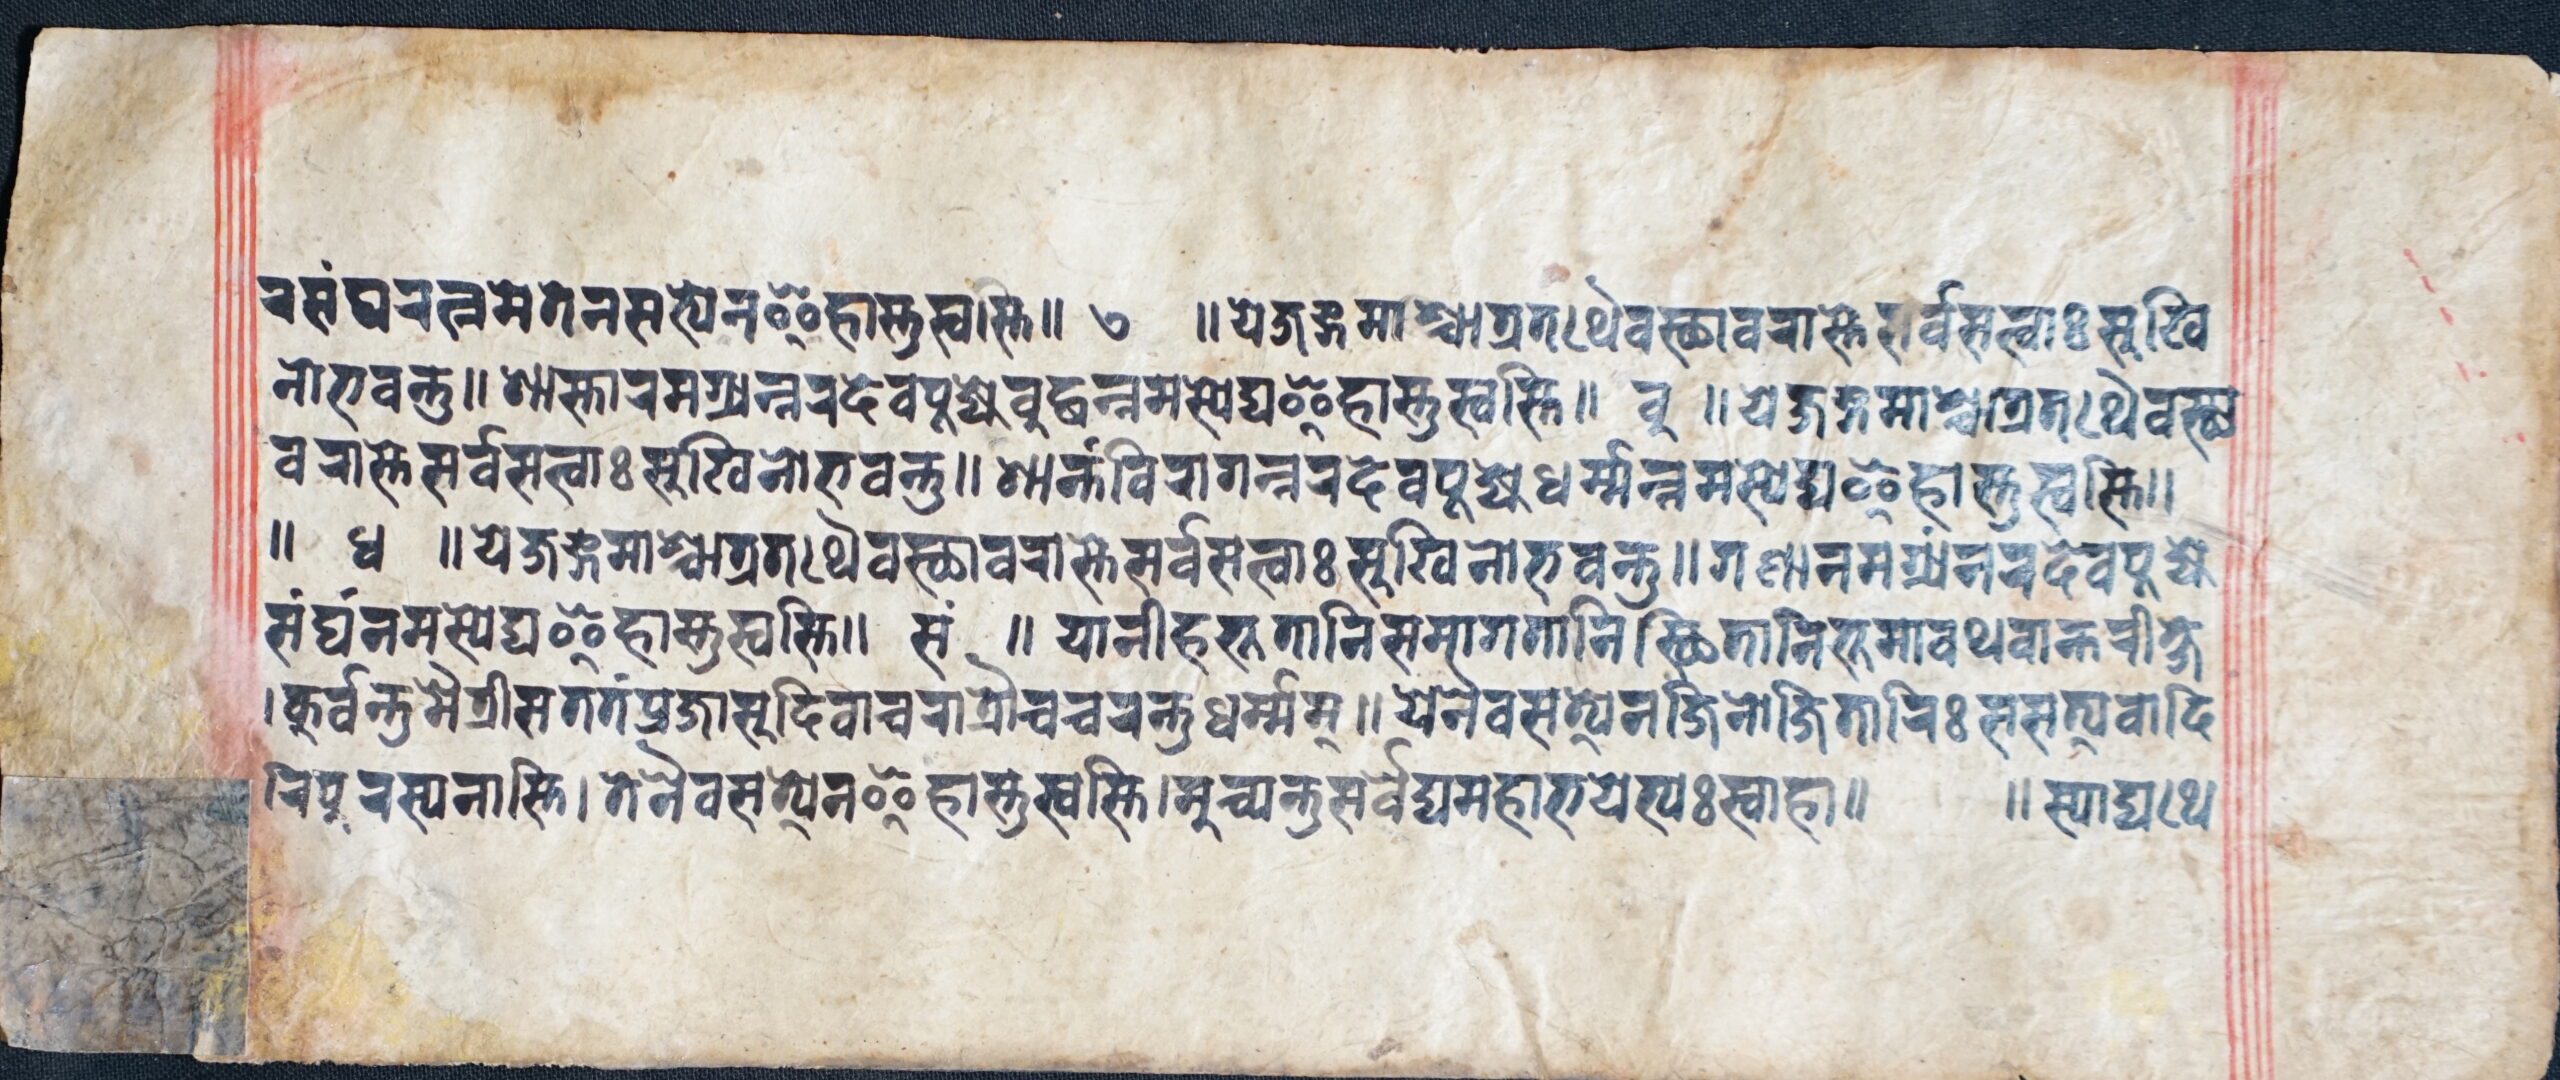 रसंघरत्नमेतेनसत्येनॐहास्तुस्वस्ति॥ ७ ॥येजङ्गमाश्चात्रतथैवस्थावरास्तेसर्वसत्वाःसुखि
नोभवन्तु॥शास्तारमग्र्यन्नरदेवपूज्यंबुद्धन्नमस्येद्यॐहास्तुस्वस्ति॥ बु ॥येजङ्गमाश्चात्रतथैवस्था
वरास्तेसर्वसत्वाःसुखिनोभवन्तु॥शान्तंविरागन्नरदेवपूज्यंधर्म्मन्नमस्येद्यॐहास्तुस्वस्ति॥
॥ ध ॥येजङ्गमाश्चात्रतथैवस्थावरास्तेसर्वसत्वाःसुखिनोभवन्तु॥गणानमग्र्यंनरदेवपूज्यं
संघंनमस्येद्यॐहास्तुस्वस्ति॥ सं ॥ यानीहभूतानिसमागतानिस्थितानिभूमावथवान्तरीक्षे
।कुर्वन्तुमैत्रीसततंप्रजासुदिवाचरात्रौचचरन्तुधर्म्मम्॥येनैवसत्येनजिनोजितारिःससत्यवादि
रिपुरस्यनास्ति।तेनैवसत्येनॐहास्तुस्वस्ति।मुच्यन्तुसर्वेद्यमहाभयेभ्यःस्वाहा॥ ॥स्याद्यथे